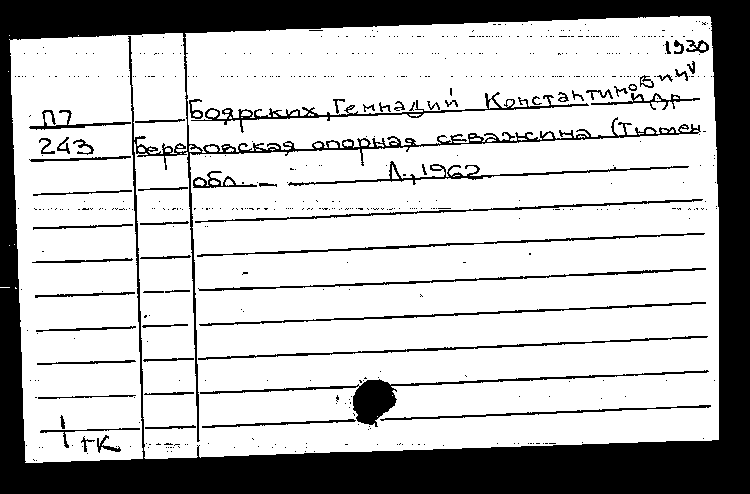 1930
П7 Боярских, Геннадий Константинович и др
243 Березовская опорная скважина. (Тюмен.
обл. Л., 1962
1 гк